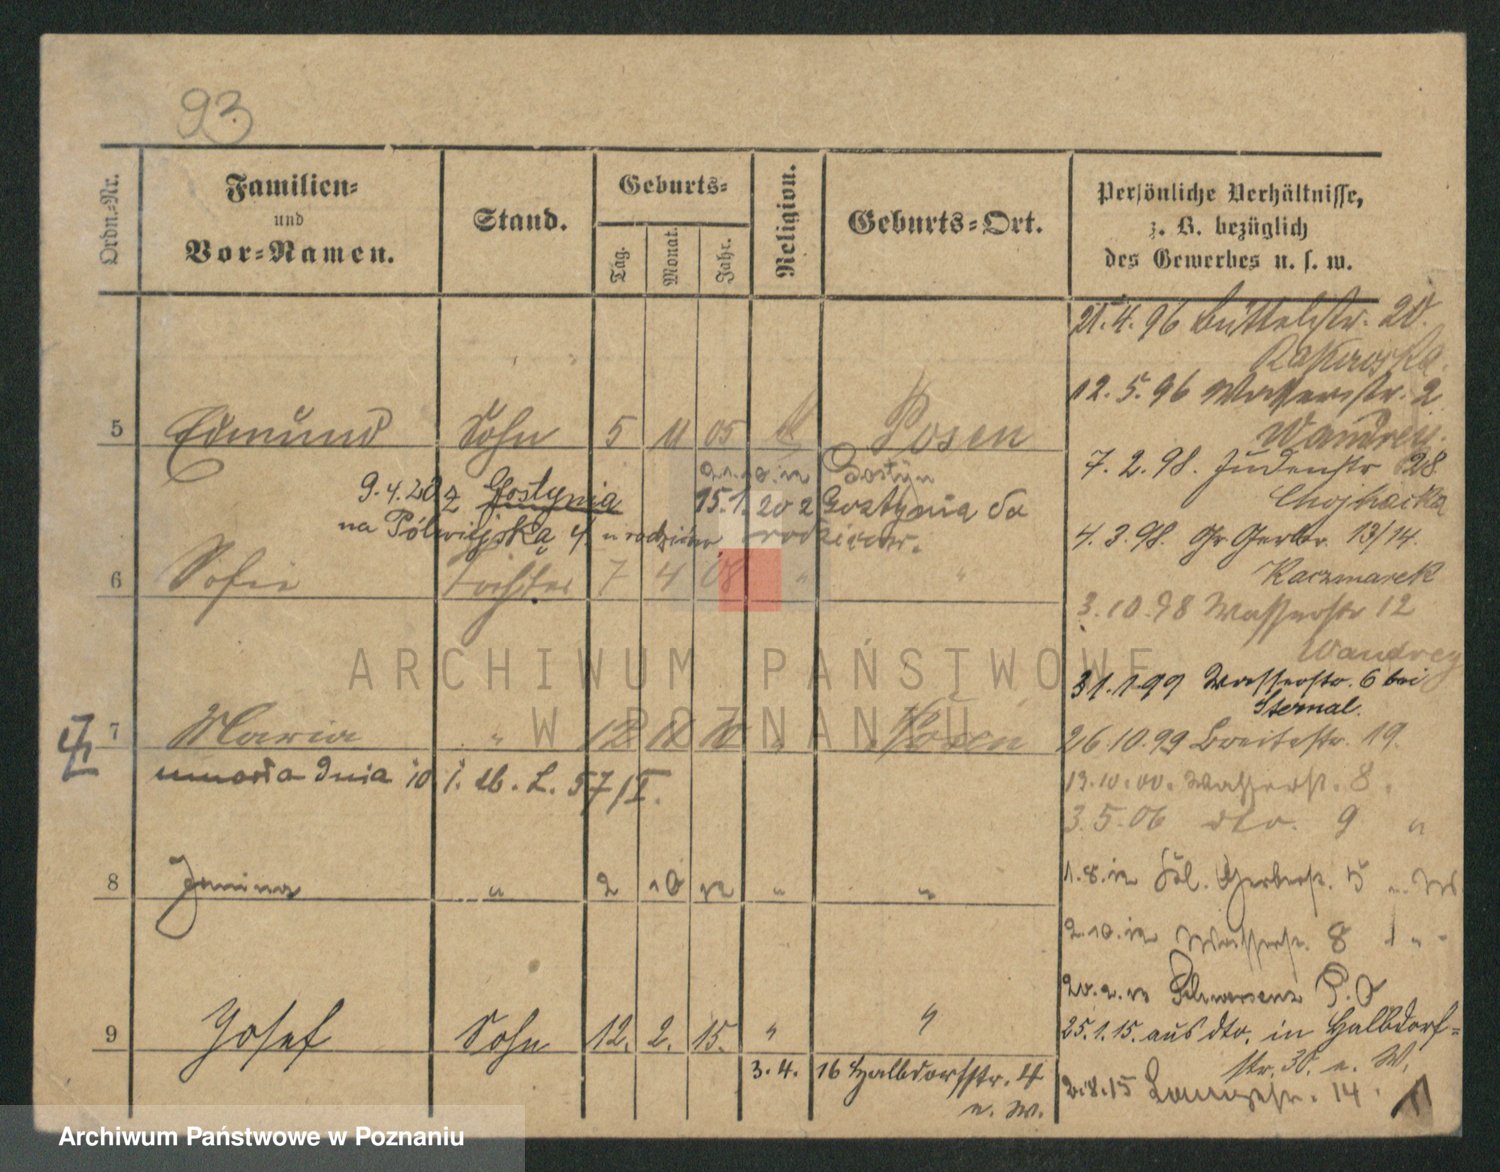 93
Ordn.-Nr.
Familien-
und
Vor-Namen.
Stand.
Geburts-
Tag.
Monat.
Jahr.
Religion.
Geburts-Ort.
Persönliche Verhältnisse,
z. B. bezüglich
des Gewerbes u. s. w.
21.4.96 Büttelstr. 20.
12.5.96 Wasserstr. 2
Wandrey.
5 Edmund Sohn 5 11 05 Posen
7.2.98. Judenstr 28
Chojnacka
21.10.12 Gostyn
9.4.20 z Gostynia 15.1.20 z Gostynia do
na Półwiejską 4. u rodziców rodziców.
4.3.98. Gr. Gerbr. 13/14
Kaczmarek
6 Sofie Tochter 7 4 08 " "
3.10.98 Wasserstr 12
Wandrey
31.1.99 Wasserstr. 6 bei
Sternal.
7 Maria " 12 11 10 " Posen
26.10.99 Breitestr. 19.
umarła dnia 10. L. 57/I.
13.10.00. Wasserstr. 8.
3.5.06 dto. 9 "
8 Janina " 2 10 12 " "
1.8.12 Gerberstr. 5
2.10.12 Wasserstr. 8
Schwersenz P.O
9 Josef Sohn 12. 2. 15. " "
25.1.15. aus dto. in Halbdorf-
str. 30. u. W.
3.4.16 Halbdorfstr. 4
u. W.
2.8.15 14.
ARCHIWUM PAŃSTWOWE
W POZNANIU
Archiwum Państwowe w Poznaniu